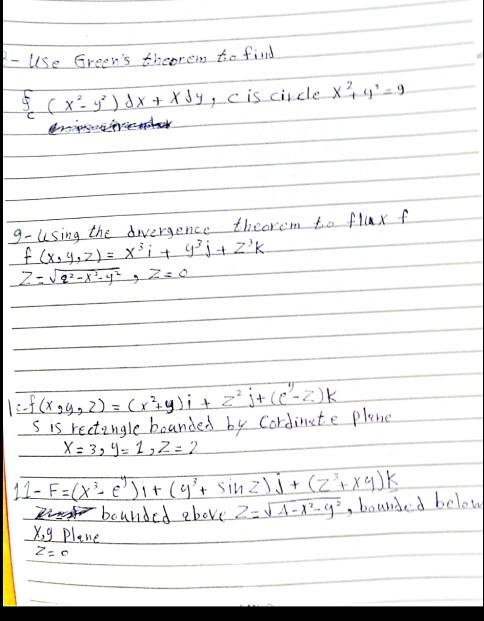 - Use Green's theorem to find
∮c (x²- y²) dx + x dy, c is circle x²+y²=9
9- Using the divergence theorem to flux f
f (x,y,z) = x³i + y³j + z³k
z = √a²-x²-y² , z=0
f(x,y,z) = (x²+y)i + z²j + (e^y-z)k
S is rectangle bounded by Cordinate plane
x=3, y=1, z=2
11- F=(x³-e^y)i + (y³+ sin z)j + (z³+xy)k
bounded above z=√4-x²-y², bounded below
x,y plane
z=0